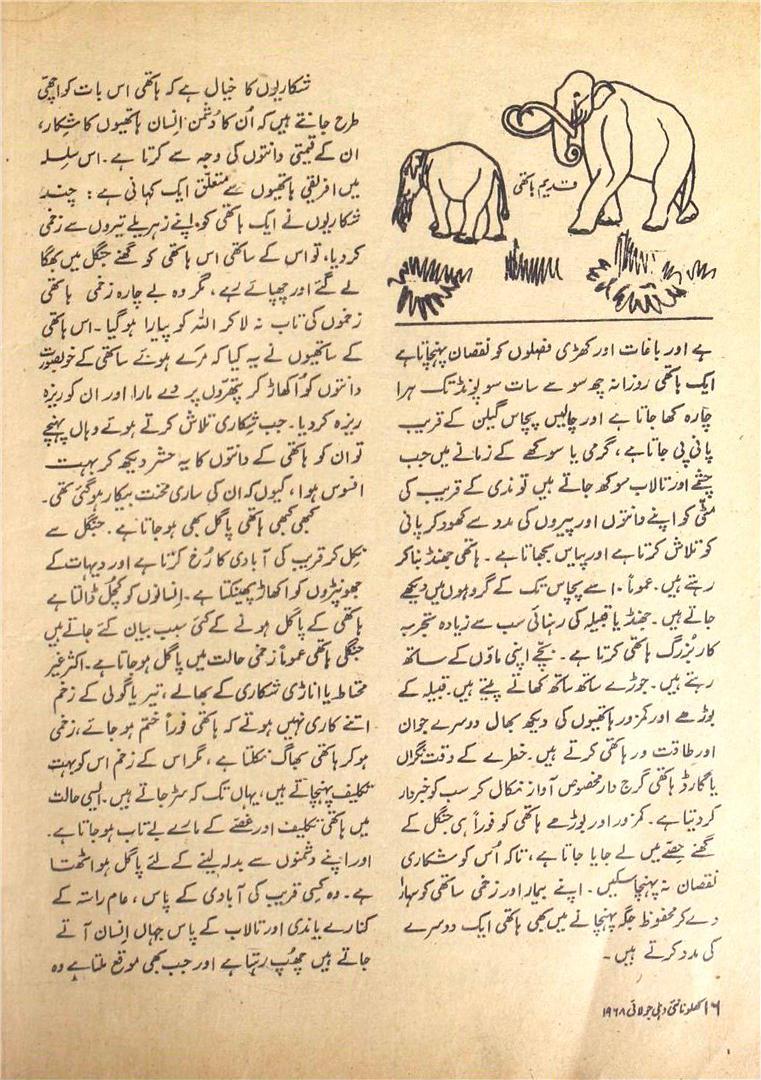 قدیم ہاتھی
ہے اور باغات اور کھڑی فصلوں کو نقصان پہنچاتا ہے
ایک ہاتھی روزانہ چھ سو سے سات سو پونڈ تک ہرا
چارہ کھا جاتا ہے اور چالیس پچاس گیلن کے قریب
پانی پی جاتا ہے، گرمی یا سوکھے کے زمانے میں جب
چشمے اور تالاب سوکھ جاتے ہیں تو ندی کے قریب کی
مٹی کو اپنے دانتوں اور پیروں کی مدد سے کھود کر پانی
کو تلاش کرتا ہے اور پیاس بجھاتا ہے۔ ہاتھی جھنڈ بنا کر
رہتے ہیں۔ عموماً ۱۰ سے پچاس تک کے گروہوں میں دیکھے
جاتے ہیں۔ جھنڈ یا قبیلہ کی رہنمائی سب سے زیادہ تجربہ
کار بزرگ ہاتھی کرتا ہے۔ بچے اپنی ماؤں کے ساتھ
رہتے ہیں۔ جوڑے ساتھ ساتھ کھاتے پیتے ہیں۔ قبیلہ کے
بوڑھے اور کمزور ہاتھیوں کی دیکھ بھال دوسرے جوان
اور طاقت ور ہاتھی کرتے ہیں۔ خطرے کے وقت نگراں
یا گارڈ ہاتھی گرج دار مخصوص آواز نکال کر سب کو خبردار
کر دیتا ہے۔ کمزور اور بوڑھے ہاتھی کو فوراً ہی جنگل کے
گھنے حصے میں لے جایا جاتا ہے، تاکہ اُس کو شکاری
نقصان نہ پہنچا سکیں۔ اپنے بیمار اور زخمی ساتھی کو سہارا
دے کر محفوظ جگہ پہنچانے میں بھی ہاتھی ایک دوسرے
کی مدد کرتے ہیں۔
شکاریوں کا خیال ہے کہ ہاتھی اس بات کو اچھی
طرح جانتے ہیں کہ اُن کا دُشمن اِنسان ہاتھیوں کا شِکار،
ان کے قیمتی دانتوں کی وجہ سے کرتا ہے۔ اس سِلسِلہ
میں افریقی ہاتھیوں سے متعلّق ایک کہانی ہے: چند
شکاریوں نے ایک ہاتھی کو اپنے زہریلے تیروں سے زخمی
کر دیا، تو اس کے ساتھی اس ہاتھی کو گھنے جنگل میں بھگا
لے گئے اور چھپائے رہے، مگر وہ بے چارہ زخمی ہاتھی
زخموں کی تاب نہ لا کر اللہ کو پیارا ہوگیا۔ اس ہاتھی
کے ساتھیوں نے یہ کیا کہ مرے ہوئے ساتھی کے خوبصورت
دانتوں کو اُکھاڑ کر پتھروں پر دے مارا اور ان کو ریزہ
ریزہ کر دیا۔ جب شِکاری تلاش کرتے ہوئے وہاں پہنچے
تو ان کو ہاتھی کے دانتوں کا یہ حشر دیکھ کر بہت
افسوس ہوا، کیوں کہ ان کی ساری محنت بیکار ہوگئی تھی۔
کبھی کبھی ہاتھی پاگل بھی ہو جاتا ہے۔ جنگل سے
نکل کر قریب کی آبادی کا رُخ کرتا ہے اور دیہات کے
جھونپڑوں کو اکھاڑ پھینکتا ہے۔ اِنسانوں کو کچل ڈالتا ہے
ہاتھی کے پاگل ہونے کے کئی سبب بیان کئے جاتے ہیں
جنگلی ہاتھی عموماً زخمی حالت میں پاگل ہو جاتا ہے۔ اکثر غیر
محتاط یا اناڑی شکاری کے بھالے، تیر یا گولی کے زخم
اتنے کاری نہیں ہوتے کہ ہاتھی فوراً ختم ہو جائے، زخمی
ہو کر ہاتھی بھاگ نکلتا ہے، مگر اس کے زخم اس کو بہت
تکلیف پہنچاتے ہیں، یہاں تک کہ سڑ جاتے ہیں۔ ایسی حالت
میں ہاتھی تکلیف اور غصّے کے مارے بے تاب ہو جاتا ہے۔
اور اپنے دشمنوں سے بدلہ لینے کے لئے پاگل ہو اٹھتا
ہے۔ وہ کسی قریب کی آبادی کے پاس، عام راستہ کے
کنارے یا ندی اور تالاب کے پاس جہاں اِنسان آتے
جاتے ہیں چھُپ رہتا ہے اور جب بھی موقع ملتا ہے وہ
۱۶ کھلونا نئی دہلی جولائی ۱۹۶۸